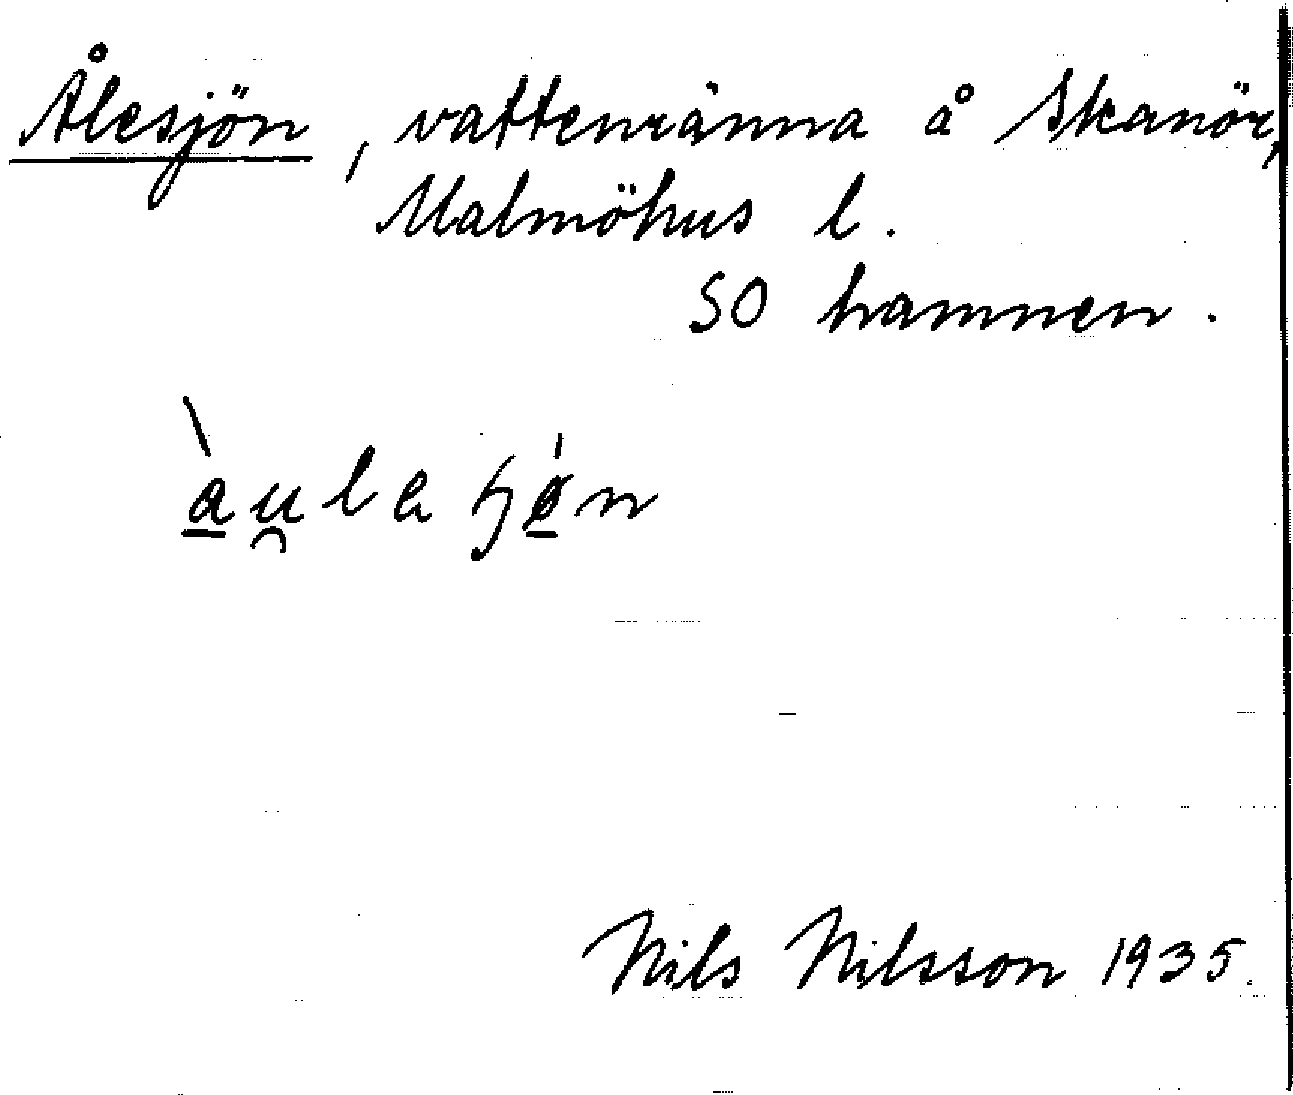 Ålesjön, vattenränna å Skanör,
Malmöhus l.
SO hamnen.
àu̯laɧǿn
Nils Nilsson 1935.